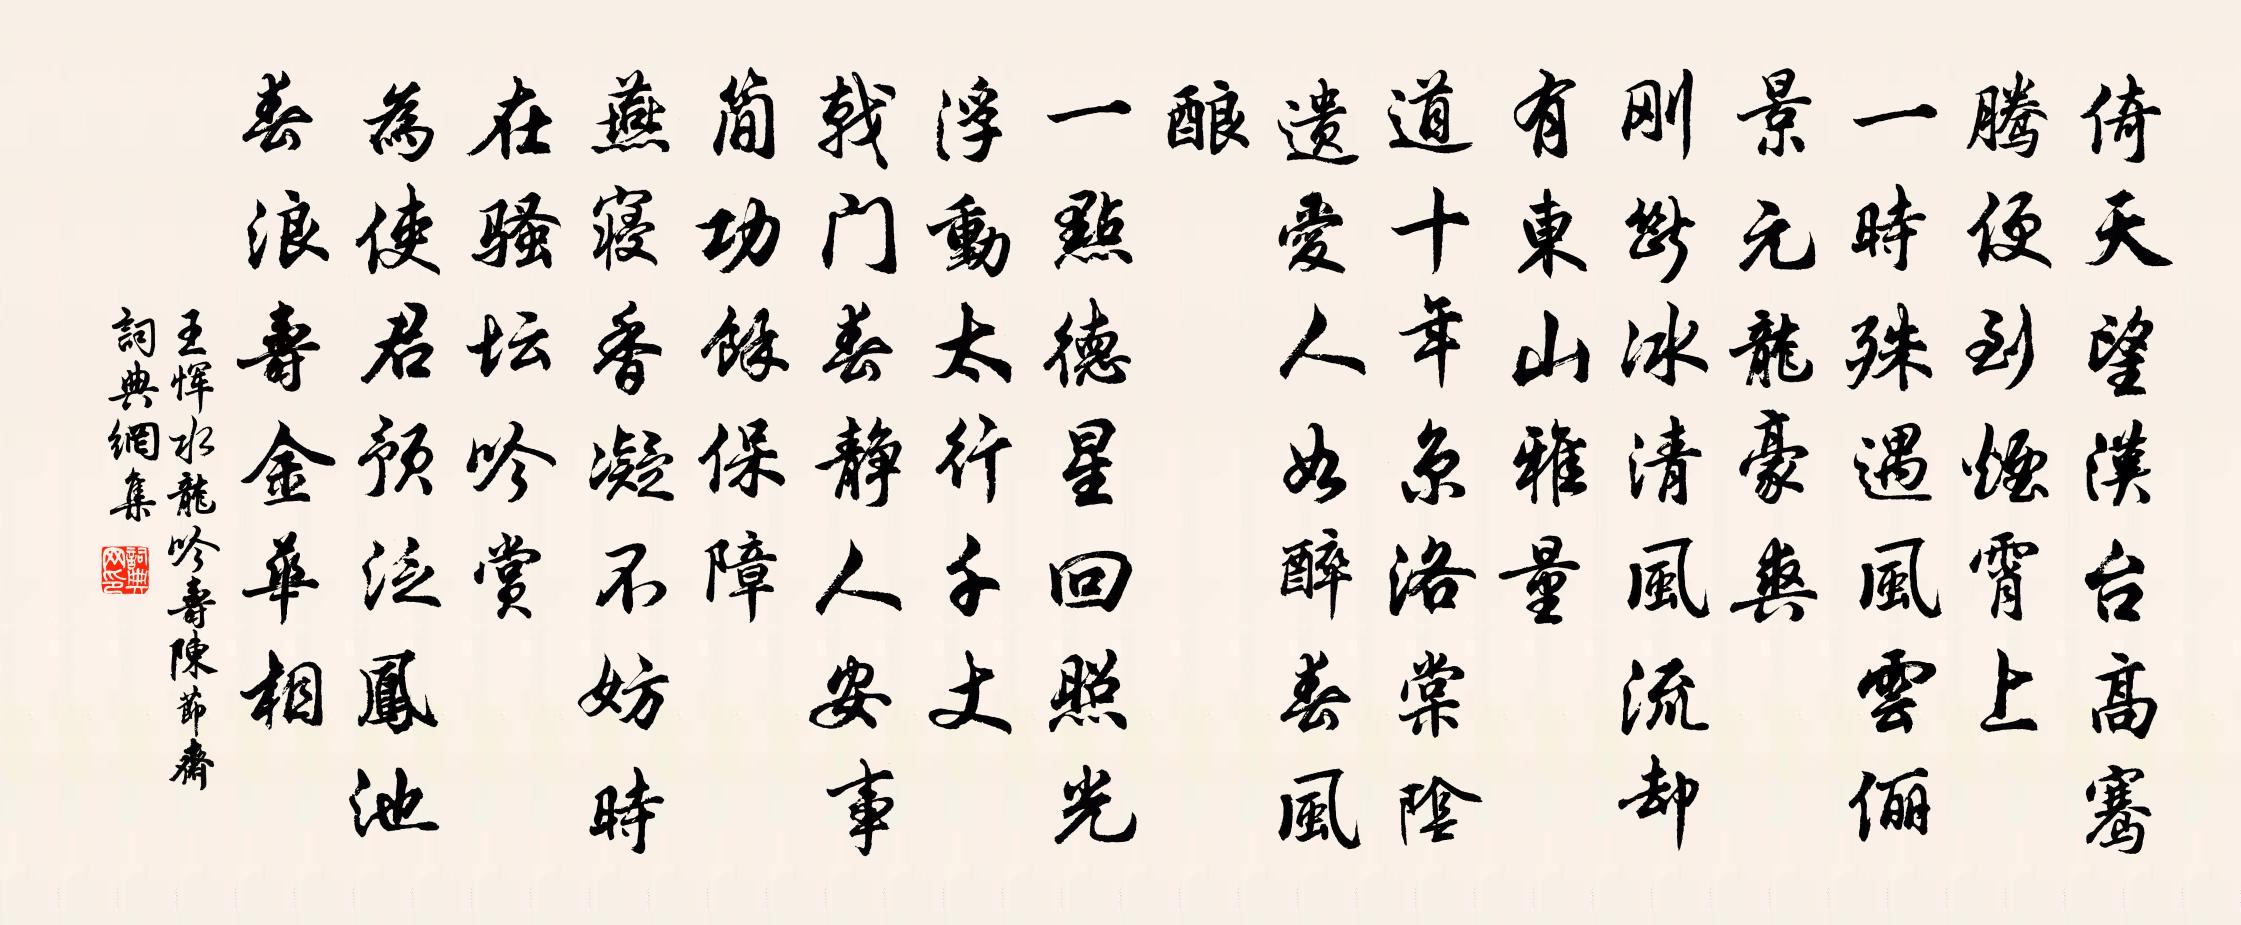 倚天望漢台高騫
騰便到煙霄上
一時殊遇風雲俪
景元龍豪爽
刚斷冰清風流却
有東山雅量
道十年京洛棠陰
遗愛人如醉春風
酿
一點德星回照光
浮動太行千丈
戟门春静人安事
简功餘保障
燕寝香凝不妨時
在骚坛吟赏
為使君预泛鳳池
春浪壽金華相
王恽水龍吟壽陳節齋
詞典網集
詞典
网印